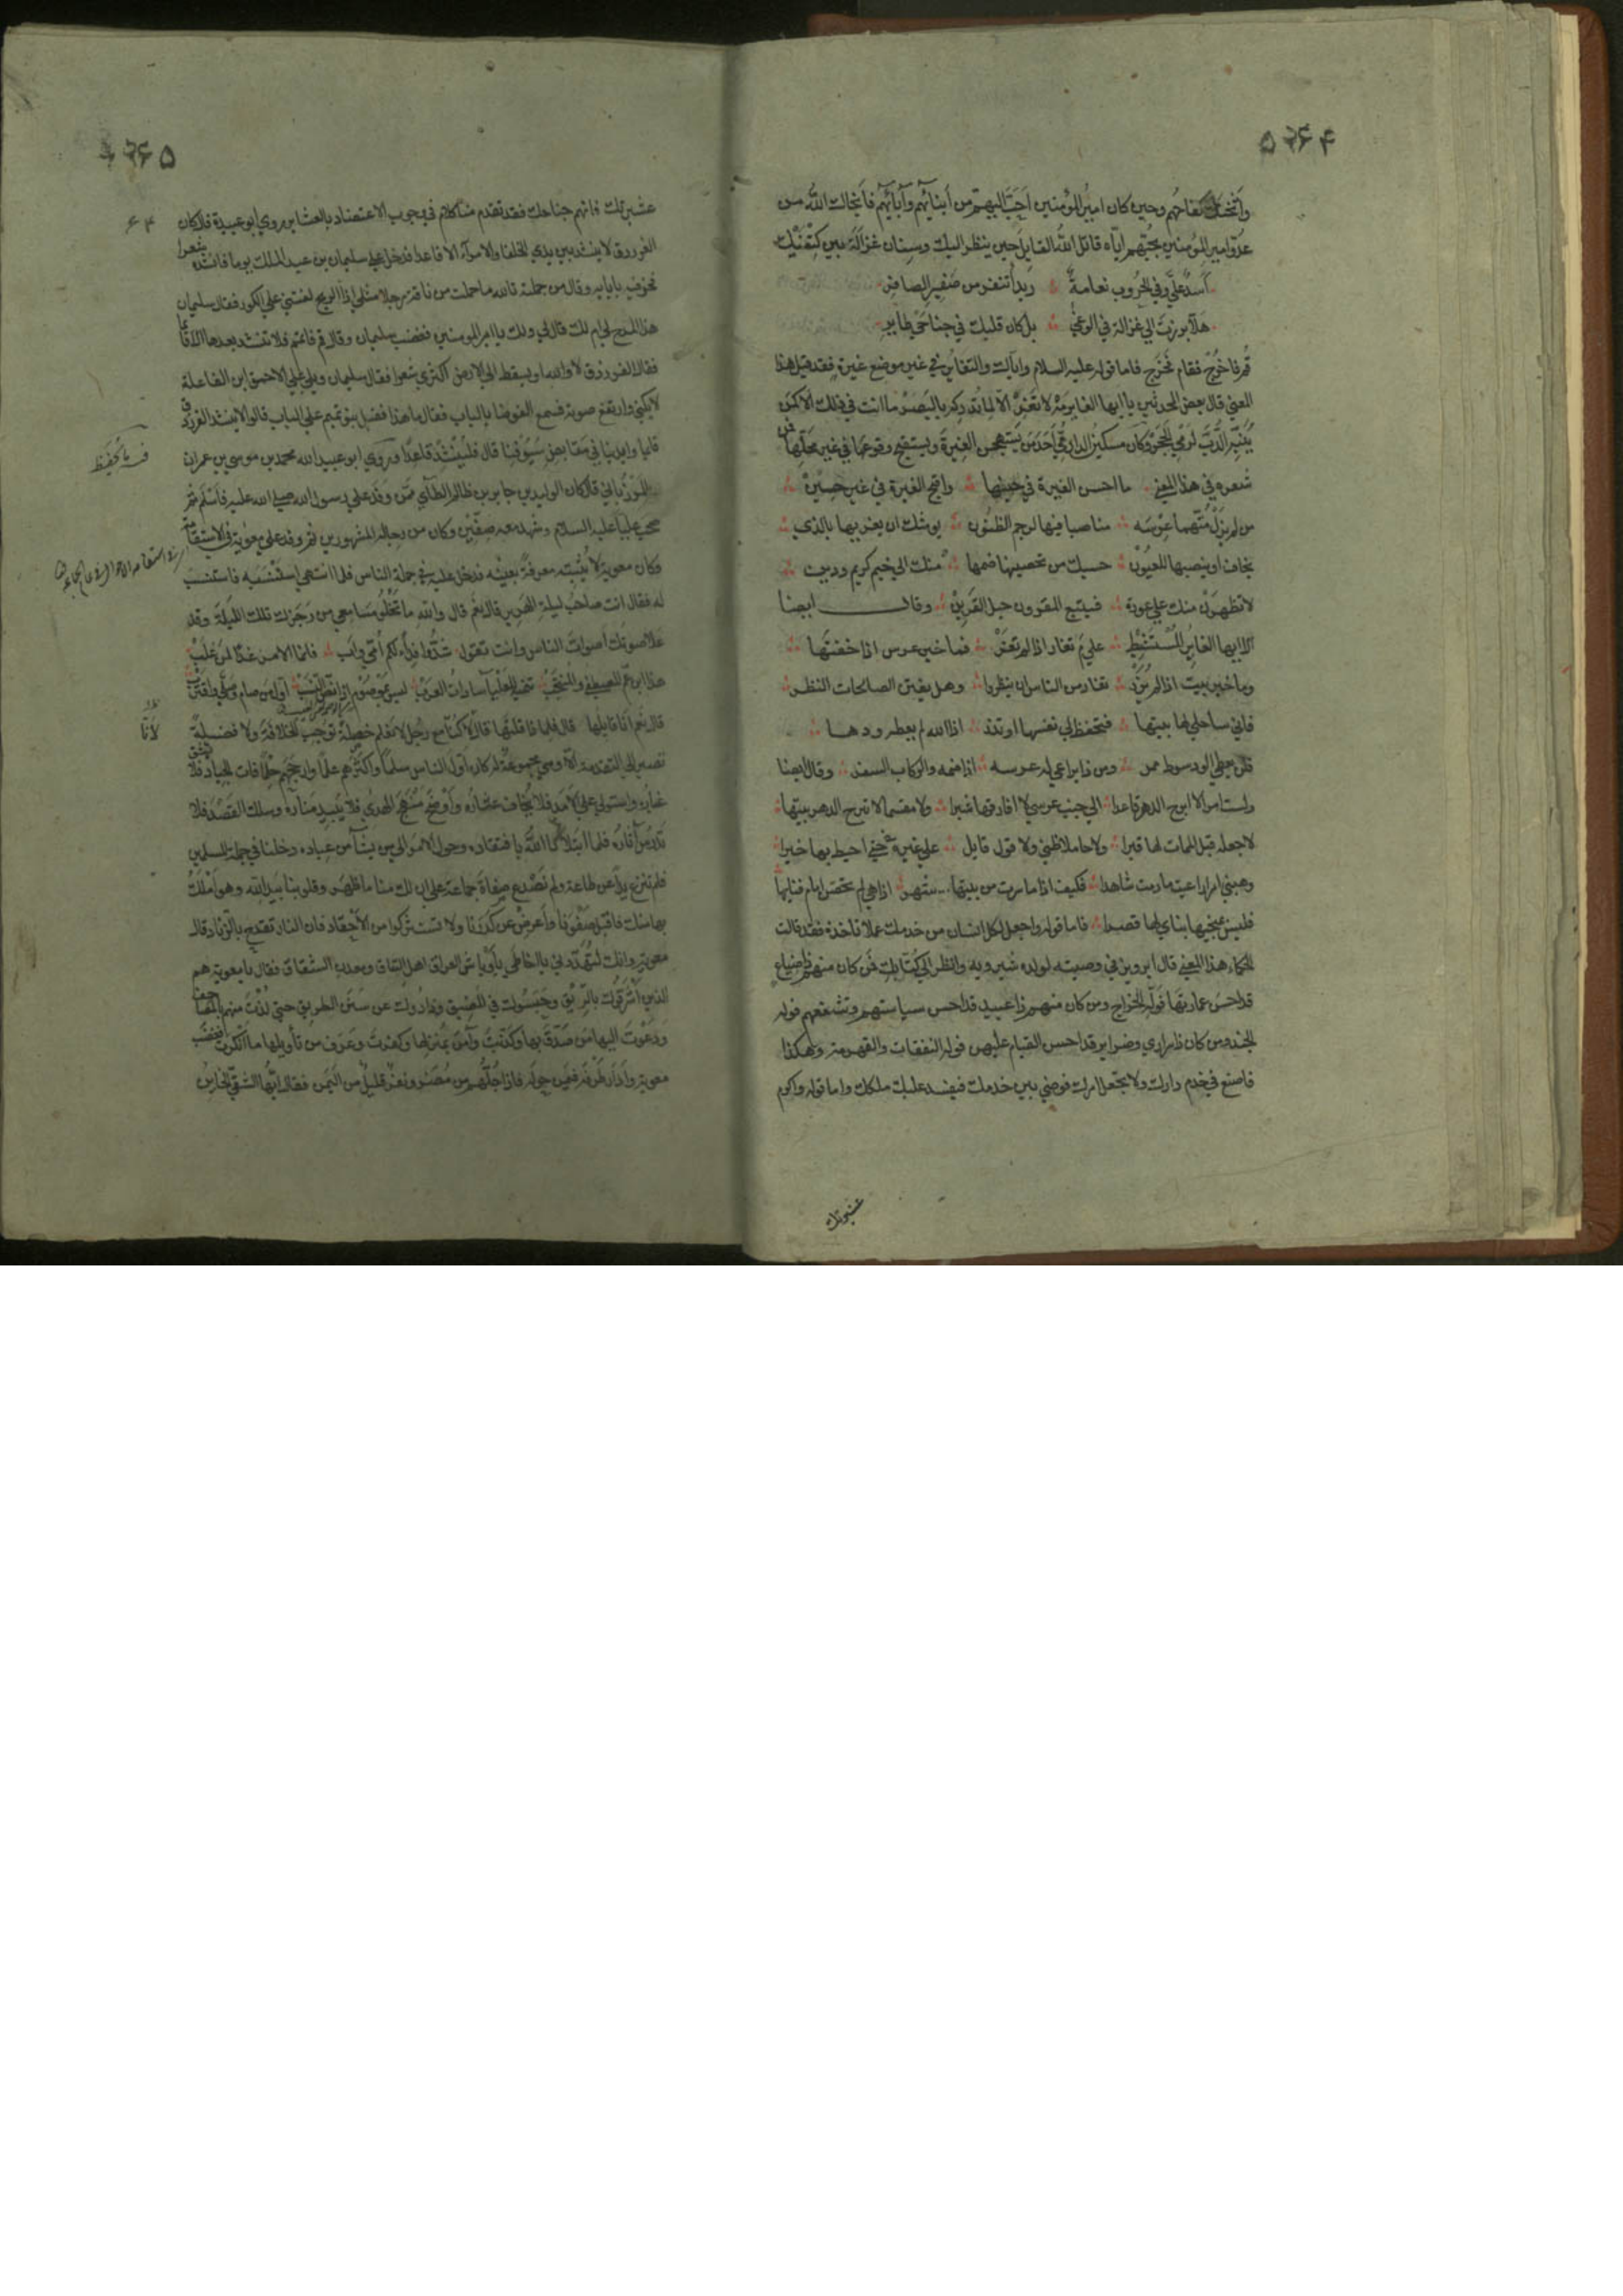 وحين كان امير المؤمنين احب اليهم من ابنائهم وآبائهم فأتخالك الله من
عدو امير المؤمنين بحبهم اياه قاتل الله القايل حين ينظر اليك وسنان غزالة بين كتفيك
أسد علي وفي الحروب نعامة ربداء تنفر من صفير الصافر
هلا برزت الي غزالة في الوغي بل كان قلبك في جناحي طاير
قم فاخرج فقام فخرج فاما قوله عليه السلام واياك والتغاير في غير موضع غيرة فقد قيل هذا
المعني قال بعض المحدثين يا ايها الغاير مه لا تغر الا لما تدركه بالبصر ما انت في ذلك الا كمن
وكان مسكين الدارمي احد من يستهجن الغيرة ويستقبح وقوعها في غير محلها فمن
شعره في هذا المعني ما احسن الغيرة في حينها واقبح الغيرة في غير حين
من لم يزل متهما عرسه مناصبا فيها لرجم الظنون يوشك ان يغريها بالذي
يخاف او ينصبها للعيون حسبك من تحصينها ضمها منك الي خيم كريم ودين
لا تظهرن منك علي عورة فيتبع المقرون حبل القرين وقال ايضا
الا ايها الغاير المستشيط علي م تغار اذا لم تغر فما خير عرس اذا خفتها
وما خير بيت اذا لم يزر تغار من الناس ان ينظروا وهل يفتن الصالحات النظر
فاني ساخلي لها بيتها فتحفظ لي نفسها او تذر اذا الله لم يعطه ودها
فلن يعطي الود سوط ممر ومن ذا يراعي له عرسه اذا ضمه والركاب السفر وقال ايضا
ولست امرا لا ابرح الدهر قاعدا الي جنب عرسي لا افارقها شبرا ولا مقسما لا تبرح الدهر بيتها
لاجعله قبل الممات لها قبرا ولا حاملا ظني ولا قول قايل علي غيرة حتي احيط بها خبرا
وهبني امرا راعيت ما دمت شاهدا فكيف اذا ما سرت من بيتها شهرا
فاما قوله واجعل لكل انسان من خدمك عملا تاخذه فقد قالت
الحكماء هذا المعني قال ابرويز في وصيته لولده شيرويه وانظر الي كتابك فمن كان منهم ذا ضياع
قد احسن عمارتها فوله الخراج ومن كان منهم ذا عبيد قد احسن سياستهم وتثقيفهم فوله
الجند ومن كان ذا سراري وضراير قد احسن القيام عليهن فوله النفقات والقهرمة وهكذا
فاصنع في خدم دارك ولا تجعل امرك فوضي بين خدمك فيفسد عليك ملكك واما قوله واكرم
عشيرتك
عشيرتك فانهم جناحك فقد تقدم منا كلام في وجوب الاعتضاد بالعشاير روي ابو عبيدة قال كان
الفرزدق لا ينشد بين يدي الخلفا والامرآء الا قاعدا فدخل علي سليمان بن عبد الملك يوما فانشده شعرا
فخر فيه بابايه وقال من جملته تالله ما حملت من ناقة رجلا مثلي اذا الريح لفتني علي الكور فقال سليمان
هذا المدح لي ام لك قال لي ولك يا امير المومنين فغضب سليمان وقال قم فاتمم فلا تنشد بعدها الا قائما
فقال الفرزدق لا والله او يسقط الي الارض اكثري شعرا فقال سليمان ويلي علي الاحمق ابن الفاعلة
لا يكني وارتفع صوته فسمع الضوضا بالباب فقال ما هذا فقيل بنو تميم علي الباب قالوا لا ينشد الفرزدق
قايما وايدينا في مقابض سيوفنا قال فلينشد قاعدا وروي ابو عبيد الله محمد بن موسي بن عمران
المرزباني قال كان الوليد بن جابر بن ظالم الطآي ممن وفد علي رسول الله صلي الله عليه فاسلم ثم
صحب عليا عليه السلام وشهد معه صفين وكان من رجاله المشهورين ثم وفد علي معوية في الاستقامة
وكان معوية لا يثبته معرفة بعينه فدخل عليه في جملة الناس فلما انتهي اليه استنسبه فانتسب
له فقال انت صاحب ليلة الهرير قال نعم قال والله ما تخلو مسامعي من رجزك تلك الليلة وقد
علا صوتك اصوات الناس وانت تقول شدوا فداء لكم امي واب فانما الامر غدا لمن غلب
هذا ابن عم المصطفي والمنتجب تنميه للعليآ سادات العرب ليس بموصوم اذا نص النسب اول من صام وصلي واقترب
قال نعم انا قايلها قال فلماذا قلتها قال لانا كنا مع رجل لا نعلم خصلة توجب الخلافة ولا فضيلة
تصير الي التقدمة الا وهي مجموعة له كان اول الناس سلما واكثرهم علما وارجحهم حلما فات الجياد فلا
واستولي علي الامد فلا يخاف عثاره واوضح منهج الهدي فلا يبيد مناره وسلك القصد فلا
تدرس آثاره فلما ابتلانا الله بافتقاده وحول الامر الي من يشآ من عباده دخلنا في جملة المسلمين
فلم ننزع يدا عن طاعة ولم نصدع صفاة جماعة علي ان لك منا ما ظهر وقلوبنا بيد الله وهو املك
بها منك فاقبل صفونا واعرض عن كدرنا ولا تستثر كوامن الاحقاد فان النار تقدح بالزناد قال
معوية وانك لتهددني يا اخا طي باوباش العراق اهل النفاق ومعدن الشقاق فقال يا معوية هم
الذين اشرقوك بالريق وحبسوك في المضيق وذادوك عن سنن الطريق حتي لذت منهم بالمصاحف
ودعوت اليها من صدق بها وكذبت وآمن بمنزلها وكفرت وعرف من تأويلها ما انكرت فغضب
معوية وادار طرفه فيمن حوله فاذا جلهم من مضر ونفر قليل من اليمن فقال ايها الشقي الخاين